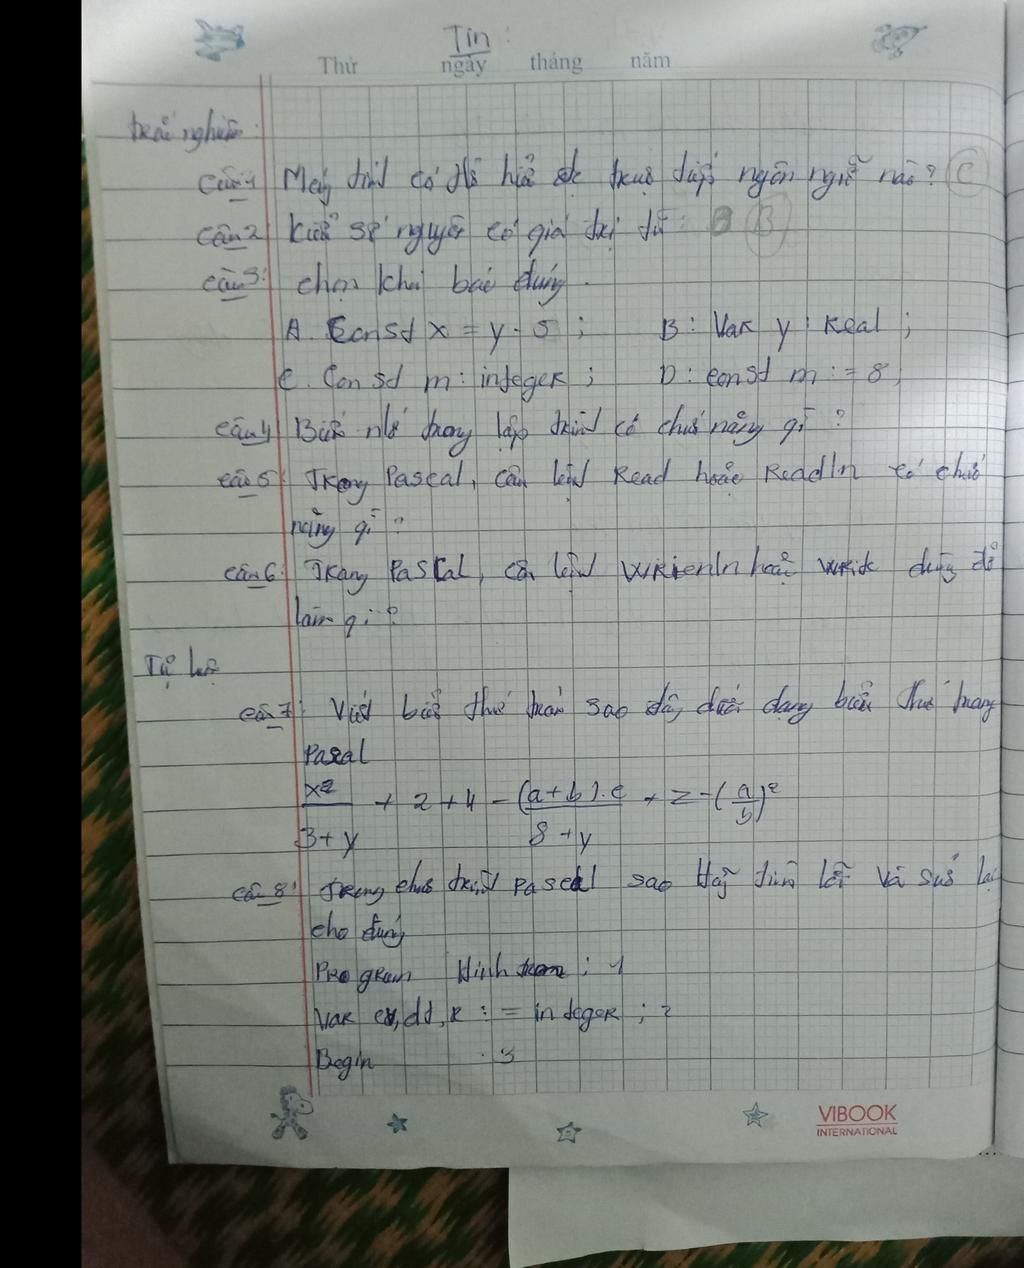 Tin:
Thứ ngày tháng năm
trắc nghiệm:
Câu 1 Máy tính có thể hiểu trực tiếp ngôn ngữ nào? C
Câu 2 Kiểu số nguyên có giá trị từ: B
Câu 3: chọn khai báo đúng.
A. Const x = y - 5; B: Var y: Real;
C. Const m: integer; D: const m := 8;
Câu 4 Biến nhớ trong lập trình có chức năng gì?
Câu 5: Trong Pascal, câu lệnh Read hoặc Readln có chức
năng gì?
Câu 6: Trong Pascal, câu lệnh hoặc write dùng để
làm gì?
Tự luận
Câu 7: Viết biểu thức toán sau đây dưới dạng biểu thức trong
Pascal
x2/3+y + 2 + 4 - (a+b).c/8+y + 2 - (a/b)²
Câu 8: Trong chương trình Pascal sau hãy tìm lỗi và sửa lại
cho đúng
Program Hinh tron; 1
Var cv, dt, r := integer; 2
Begin 3
VIBOOK
INTERNATIONAL